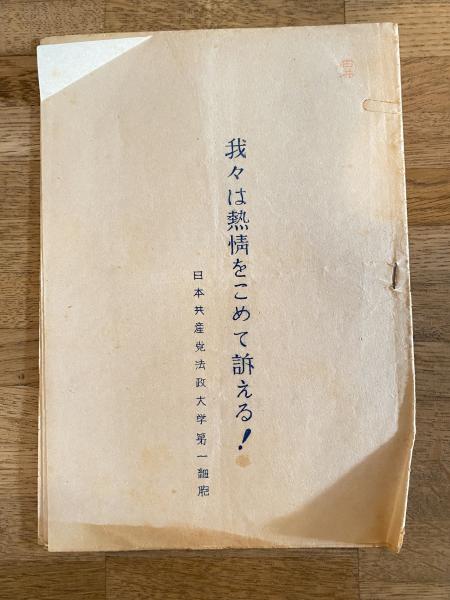 我々は熱情をこめて訴える!
日本共産党法政大学第一細胞